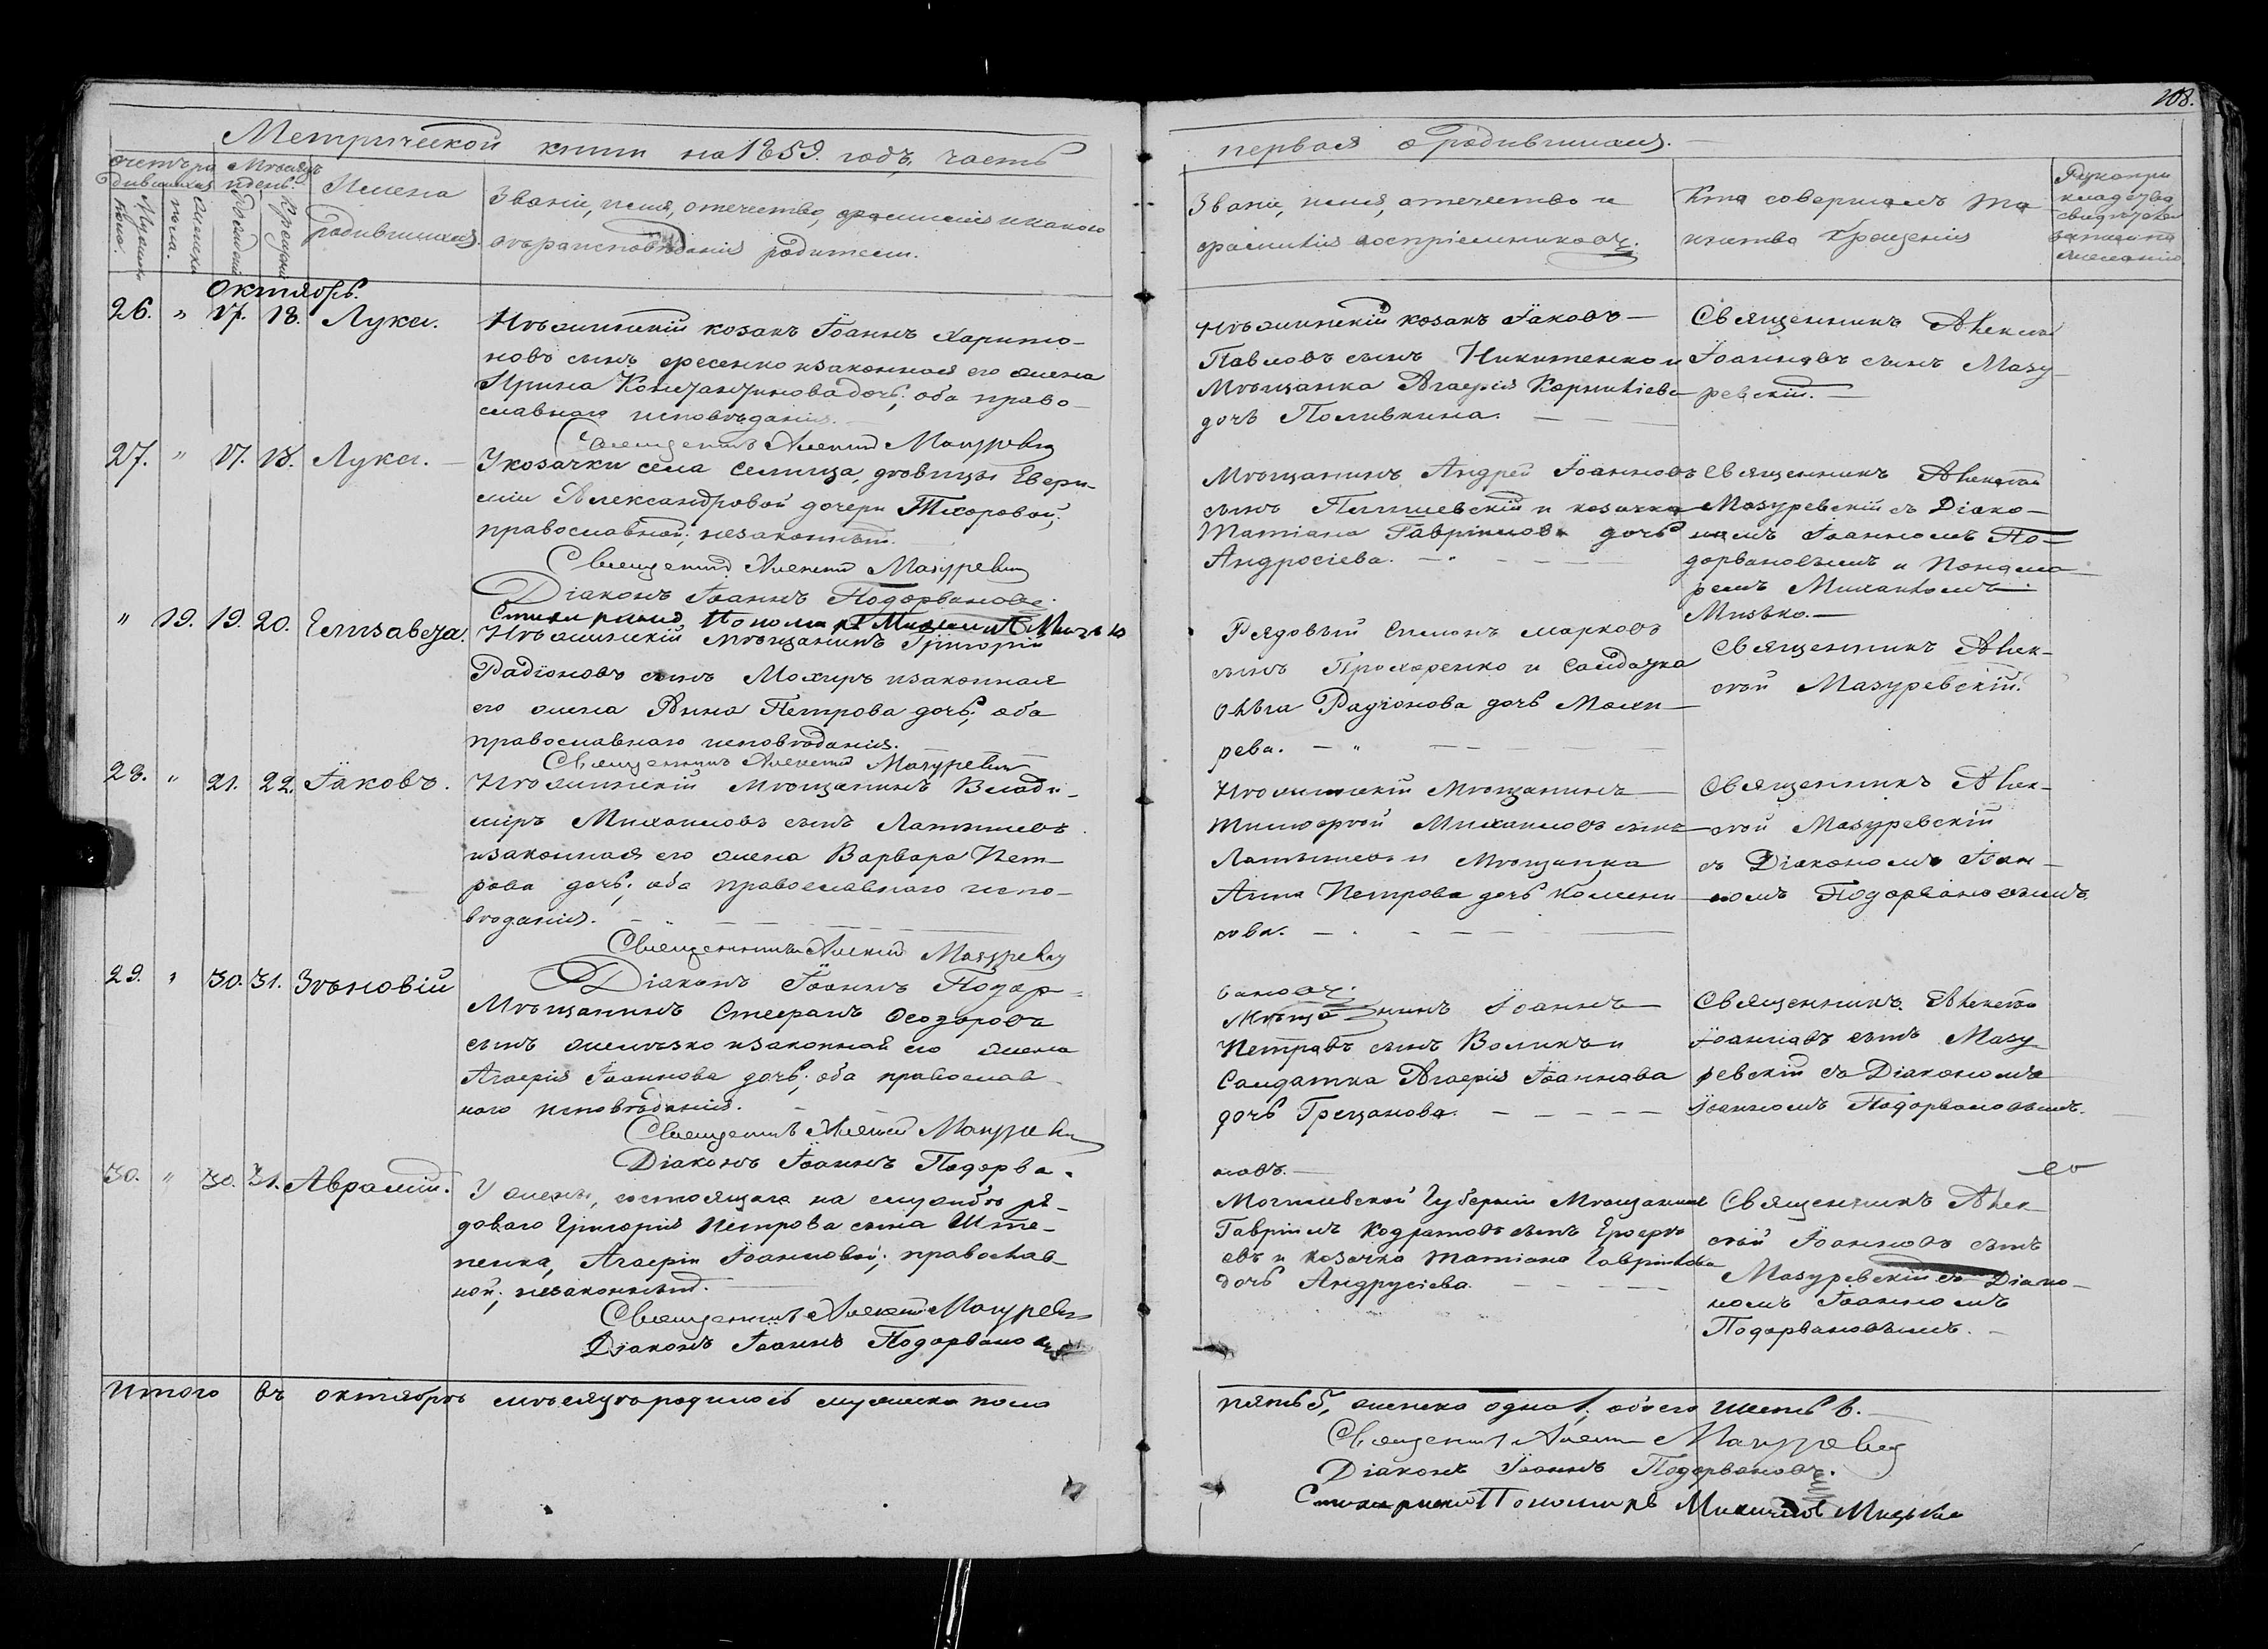 208.
Метрической книги на 1859. годъ, часть
первая о родившихся.
Счетъ ро
дившихся
Мѣсяцъ
и день.
Мужеска
пола.
Женска
пола.
Рожденія
Крещенія
Имена
родившихся.
Званіе, имя, отечество, фамилія и какого
вѣроисповѣданія родители.
Званіе, имя, отечество и
фамилія воспріемниковъ.
Кто совершалъ та
инство крещенія
Рукопри
кладство
свидѣтелей
записи по
желанію
Октябрь.
26. " 17. 18. Лука.
Нѣжинскій козакъ Іоаннъ Харито-
новъ сынъ Фесенко и законная его жена
Ирина Константинова дочь; оба право-
славнаго исповѣданія.
Священникъ Алексій Мазуревскій
Нѣжинскій козакъ Іаковъ
Павловъ сынъ Никитенко и
Мѣщанка Агафія Корниліева
дочь Поливкина.
Священникъ Алексѣй
Іоанновъ сынъ Мазу-
ревскій.
27. " 17. 18. Лука.
У козачки села Селища, дѣвицы Евфи-
міи Александровой дочери Тхоровой;
православной; незаконный.
Священникъ Алексій Мазуревскій
Діаконъ Іоаннъ Подорвановъ.
Стихарный Пономарь Михаилъ Мизько
Мѣщанинъ Андрей Іоанновъ
сынъ Пилишевскій и козачка
Татіана Гавріилова дочь
Андросіева.
Священникъ Алексѣй
Мазуревскій съ Діако-
номъ Іоанномъ По-
дорвановымъ и Понома-
ремъ Михаиломъ
Мизько.
" 19. 19. 20. Елизавета.
Нѣжинскій мѣщанинъ Григорій
Радіоновъ сынъ Мохиръ и законная
его жена Анна Петрова дочь; оба
православнаго исповѣданія.
Священникъ Алексій Мазуревскій
Рядовый Симонъ Марковъ
сынъ Прохоренко и Солдатка
Ольга Радіонова дочь Мохи-
рева.
Священникъ Алек-
сѣй Мазуревскій.
28. " 21. 22. Іаковъ.
Нѣжинскій Мѣщанинъ Влади-
міръ Михаиловъ сынъ Латышевъ
и законная его жена Варвара Пет-
рова дочь; оба православнаго испо-
вѣданія.
Священникъ Алексій Мазуревскій
Діаконъ Іоаннъ Подор-
вановъ.
Нѣжинскій Мѣщанинъ
Тимофей Михаиловъ сынъ
Латышевъ и Мѣщанка
Анна Петрова дочь
кова.
Священникъ Алек-
сѣй Мазуревскій
съ Діакономъ Іоан-
номъ Подорвановымъ.
29. " 30. 31. Зѣновій
Мѣщанинъ Стефанъ Ѳеодоровъ
сынъ и законная его жена
Агафія Іоаннова дочь; оба православ-
наго исповѣданія.
Священникъ Алексій Мазуревскій
Діаконъ Іоаннъ Подорва-
новъ.
Мѣщанинъ Іоаннъ
Петровъ сынъ Воликъ и
Солдатка Агафія Іоаннова
дочь Грецанова.
Священникъ Алексѣй
Іоанновъ сынъ Мазу-
ревскій съ Діакономъ
Іоанномъ Подорвановымъ.
30. " 30. 31. Аврамій.
У жены, состоящаго на службѣ ря-
доваго Григорія Петрова сына Ште-
пенка, Агафіи Іоанновой; православ-
ной; незаконный.
Священникъ Алексій Мазуревскій
Діаконъ Іоаннъ Подорвановъ
Могилевской Губерніи Мѣщанинъ
Гавріилъ Кодратовъ сынъ Ерофѣ
евъ и козачка Татіана Гавріилова
дочь Андрусіева.
Священникъ Алек-
сѣй Іоанновъ сынъ
Мазуревскій съ Діако-
номъ Іоанномъ
Подорвановымъ.
Итого въ октябрѣ мѣсяцѣ родилось мужеска пола
пять 5, женска одна 1; обоего шесть 6.
Священникъ Алексій Мазуревскій
Діаконъ Іоаннъ Подорвановъ.
Стихарный Пономарь Михаилъ Мизько